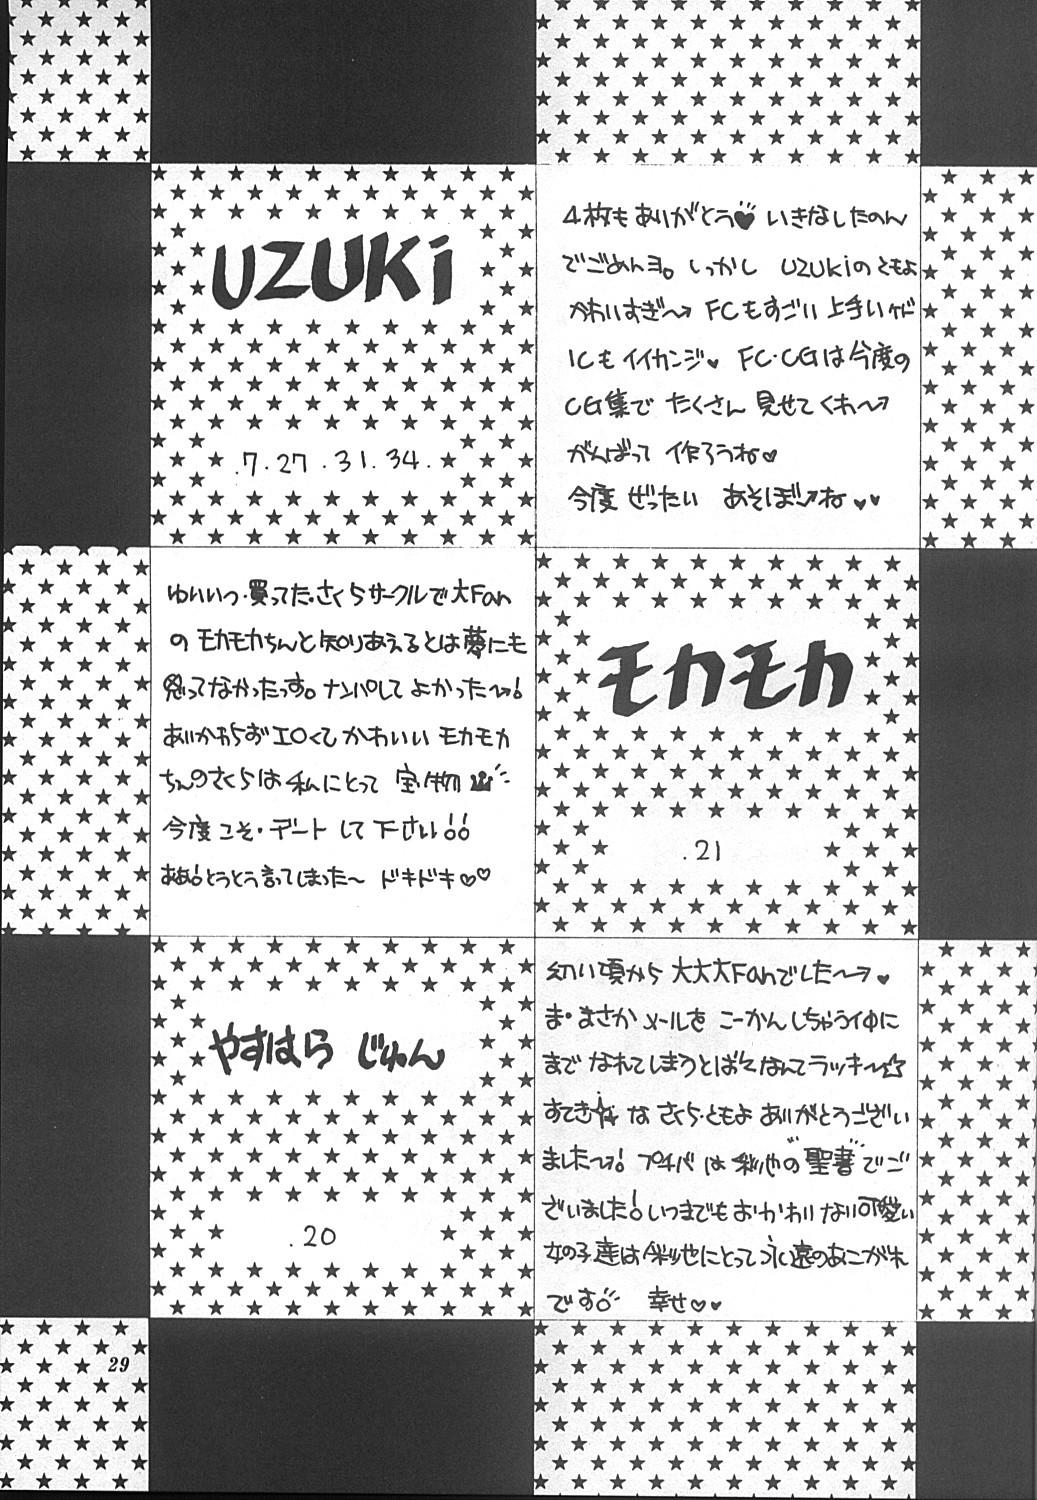 UZUKi
.7.27.31.34.
4枚もありがとう♥いきなしたのん
でごめんヨ。しっかし UZUKiのともよ
かわいすぎ〜→ FCもすごい上手いケド
ICもイイカンジ♥ FC・CGは今度の
CG集で たくさん 見せてくれ〜→
がんばって 作ろうね♥
今度 ぜったい あそぼ→ね♥♥
ゆいいつ・買ってた・さくらサークルで大Fan
の モカモカちんと知りあえるとは夢にも
思ってなかったっす。ナンパしてよかった〜→!
あいかわらずエロくてかわいい モカモカ
ちんのさくらは 私にとって 宝物
今度こそ・デート して下さい!!
ああ!とうとう言ってしまった〜 ドキドキ♡♡
モカモカ
.21
やすはら じゅん
.20
幼い頃から 大大大Fanでした〜→♥
ま・まさか メールを こーかんしちゃう仲に
まで なれてしまうとは なんてラッキ〜☆
すてき☆な さくら・ともよ ありがとうござい
ました〜→! プチパは 彩也の"聖書"でご
ざいました!いつまでもおかわりない可愛い
女の子達は 彩也にとって永遠のあこがれ
です♂ 幸せ♡♥
29